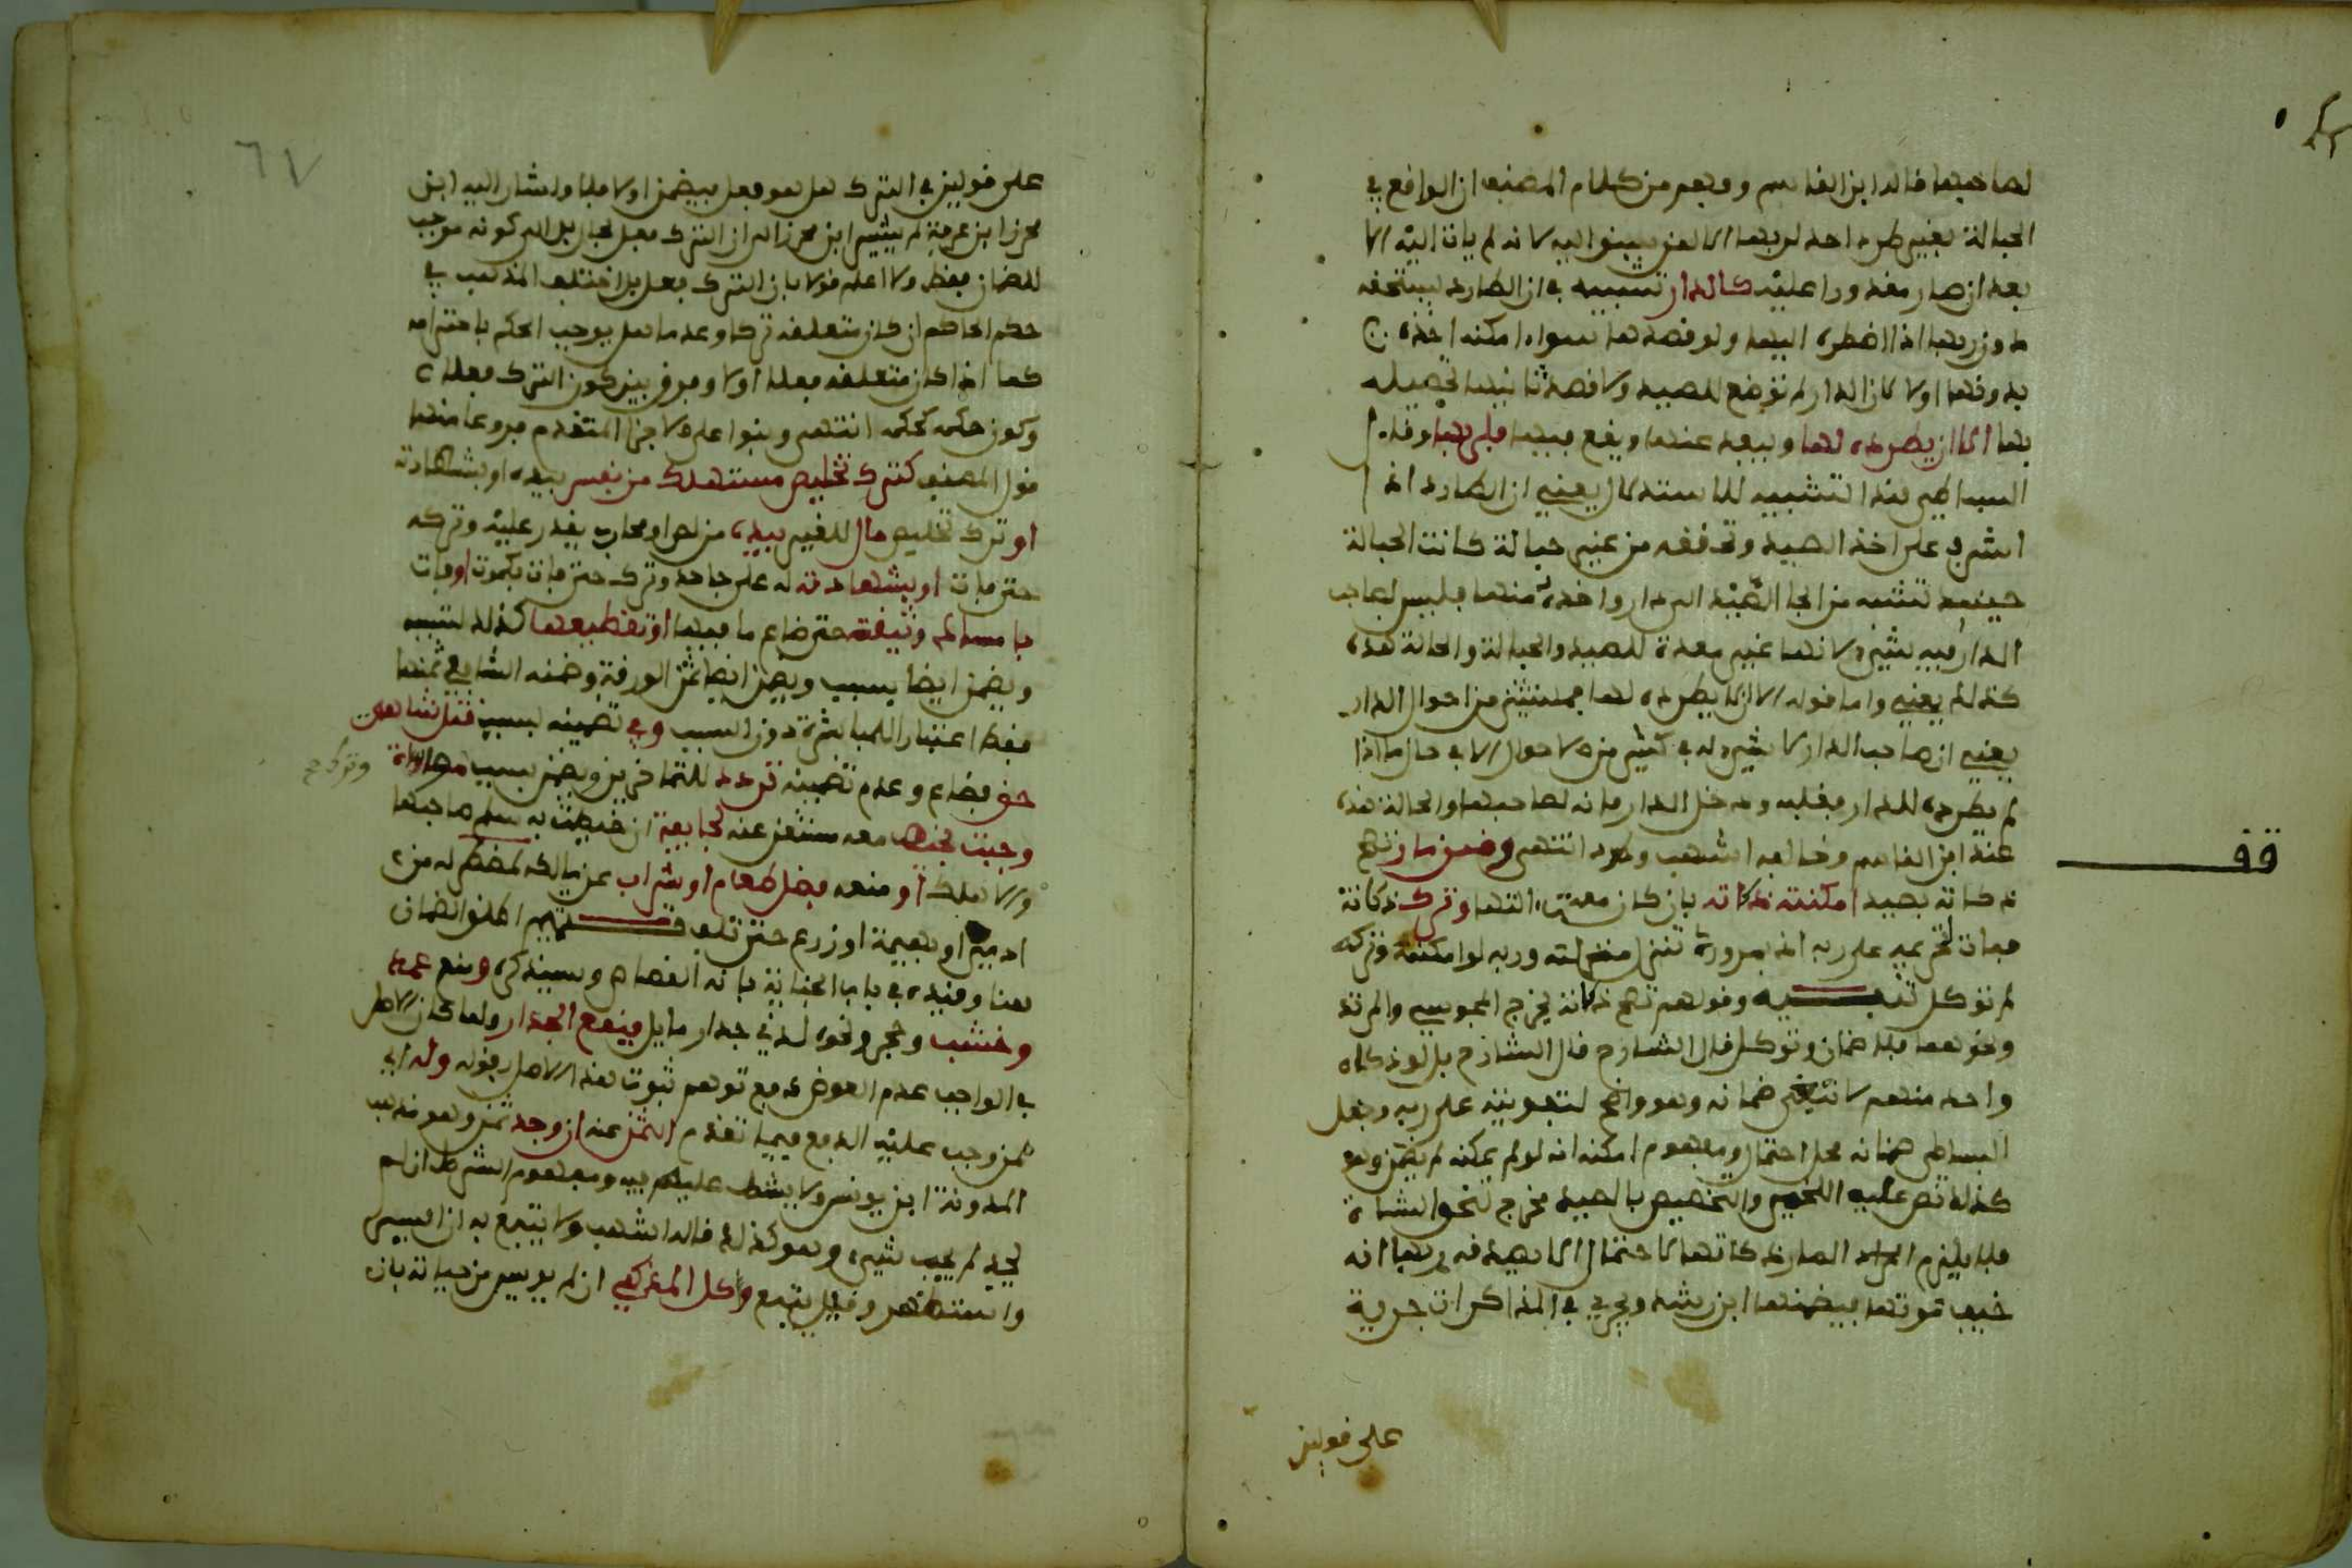 لصاحبها قاله ابن القاسم وفهم من كلام المصنف ان الواقع في
الحبالة بغير طرد احد لربها
بعد ان صار مقدورا عليه كالدار تشبيه في ان الطارد يستحقه
دون ربها اذا اضطره اليها ولو قصدها سواء امكنه اخذه
بدونها اولا لان الدار لم توضع للصيد ولا قصد بانيها تحصيله
بها الا ان يطرده لها وييعد عنها ويقع فيها فلربها وقال
البساطي هذا التشبيه للاستدلال يعني ان الطارد اذا
اشرف على اخذ الصيد وتحققه من غير حبالة كانت الحبالة
حينئذ تشبه من الجا الصيد الى دار واخذه منها فليس لصاحب
الدار فيه شيء لانها غير معدة للصيد والحبالة والحالة هذه
كذلك يعني واما قوله الا ان لا يطرده لها فمستثنى من احوال الدار
يعني ان صاحب الدار لا شيء له في كثير من الاحوال الا في حال ما اذا
لم يطرده للدار فغلبه ودخل الدار فانه لصاحبها والحالة هذه
عند ابن القاسم وخالفه اشهب وطرد انتهى وضمن مار تصح
قف
ذكاته بصيد امكنته ذكاته بان كان معه التها وترك ذكاته
فمات لتحريمه على ربه اذ بمروره تنزل منزلته وربه لو امكنته وتركه
لم توكل تنبيه وقولهم تصح ذكاته يخرج المجوسي والمرتد
ونحوهما فلا ضمان وتوكل قال الشارح قال الشارح بل لو ذكاه
واحد منهم لاتجه ضمانه وهو واضح لتفويته على ربه وجعل
البساطي ضمانه محل احتمال ومفهوم امكنه انه لو لم يمكنه لم يضمن وهو
كذلك نص عليه اللخمي والتخصيص بالصيد مخرج لنحو الشاة
فلا يلزم المار ذكاتها لاحتمال ان لا يصدقه ربها انه
خيف موتها فيضمنها ابن رشد ويجري في المذاكرات جريه
على قولين
٦٧
على قولين في الترك هل هو فعل فيضمن اولا فلا واشار اليه ابن
محرز ابن عرفة لم يشر ابن محرز الى ان الترك فعل بحال بل الى كونه موجب
للضمان فقط ولا اعلم قولا بان الترك فعل بل اختلف المذهب في
حكم الحاكم ان كان متعلقه تركا وعدما هل يوجب الحكم باحترامه
كما اذا كان متعلقه فعلا اولا وفرق بين كون الترك فعلا
وكون حكمه كحكمه انتهى وبنوا على الاجراء المتقدم فروعا منها
قول المصنف كترك تخليص مستهلك من نفس بيده او بشهادته
او ترك تخليص مال للغير بيده من لص او محارب يقدر عليه وتركه
حتى فات او بشهادته له على جاحد وترك حتى فات بكموت اوفات
بامساك وثيقة حتى ضاع ما فيها او تقطيعها كذلك لتسببه
ويضمن ايضا بسبب ويضمن ايضا ثمن الورقة وضمنه الشافعي ثمنها
فقط اعتبار اللمباشرة دون السبب وفي تضمينه بسبب قتل شاهدي
حق فضاع وعدم تضمينه تردد للمتاخرين ويضمن بسبب ترك مواساة
وجبت بخيط معه مستغن عنه لجايفة ان خيطت به سلم صاحبها
والا هلك او منعه فضل طعام او شراب عن مالكه لمضطر له من
ادمي او بهيمة او زرع حتى تلف تتميم اطلق الضمان
هنا وقيده في باب الجناية بانه القصاص وسيذكره ومنع عمد
وخشب وحجر ونحوه لذي جدار مايل فيقع الجدار ولما كان الاصل
في الواجب عدم العوض دفع توهم ثبوت هذا الاصل بقوله وله اي
لمن وجب عليه الدفع فيما تقدم الثمن عنه ان وجد ثمن وهو مذهب
المدونة ابن يونس ولا يشطط عليهم فيه ومفهوم الشرط ان لم
يجد لم يجب شيء وهو كذلك قاله اشهب ولا يتبع به ان ايسر
واستظهر وقيل يتبع واكل المذكى ان لم يويس من حياته بان